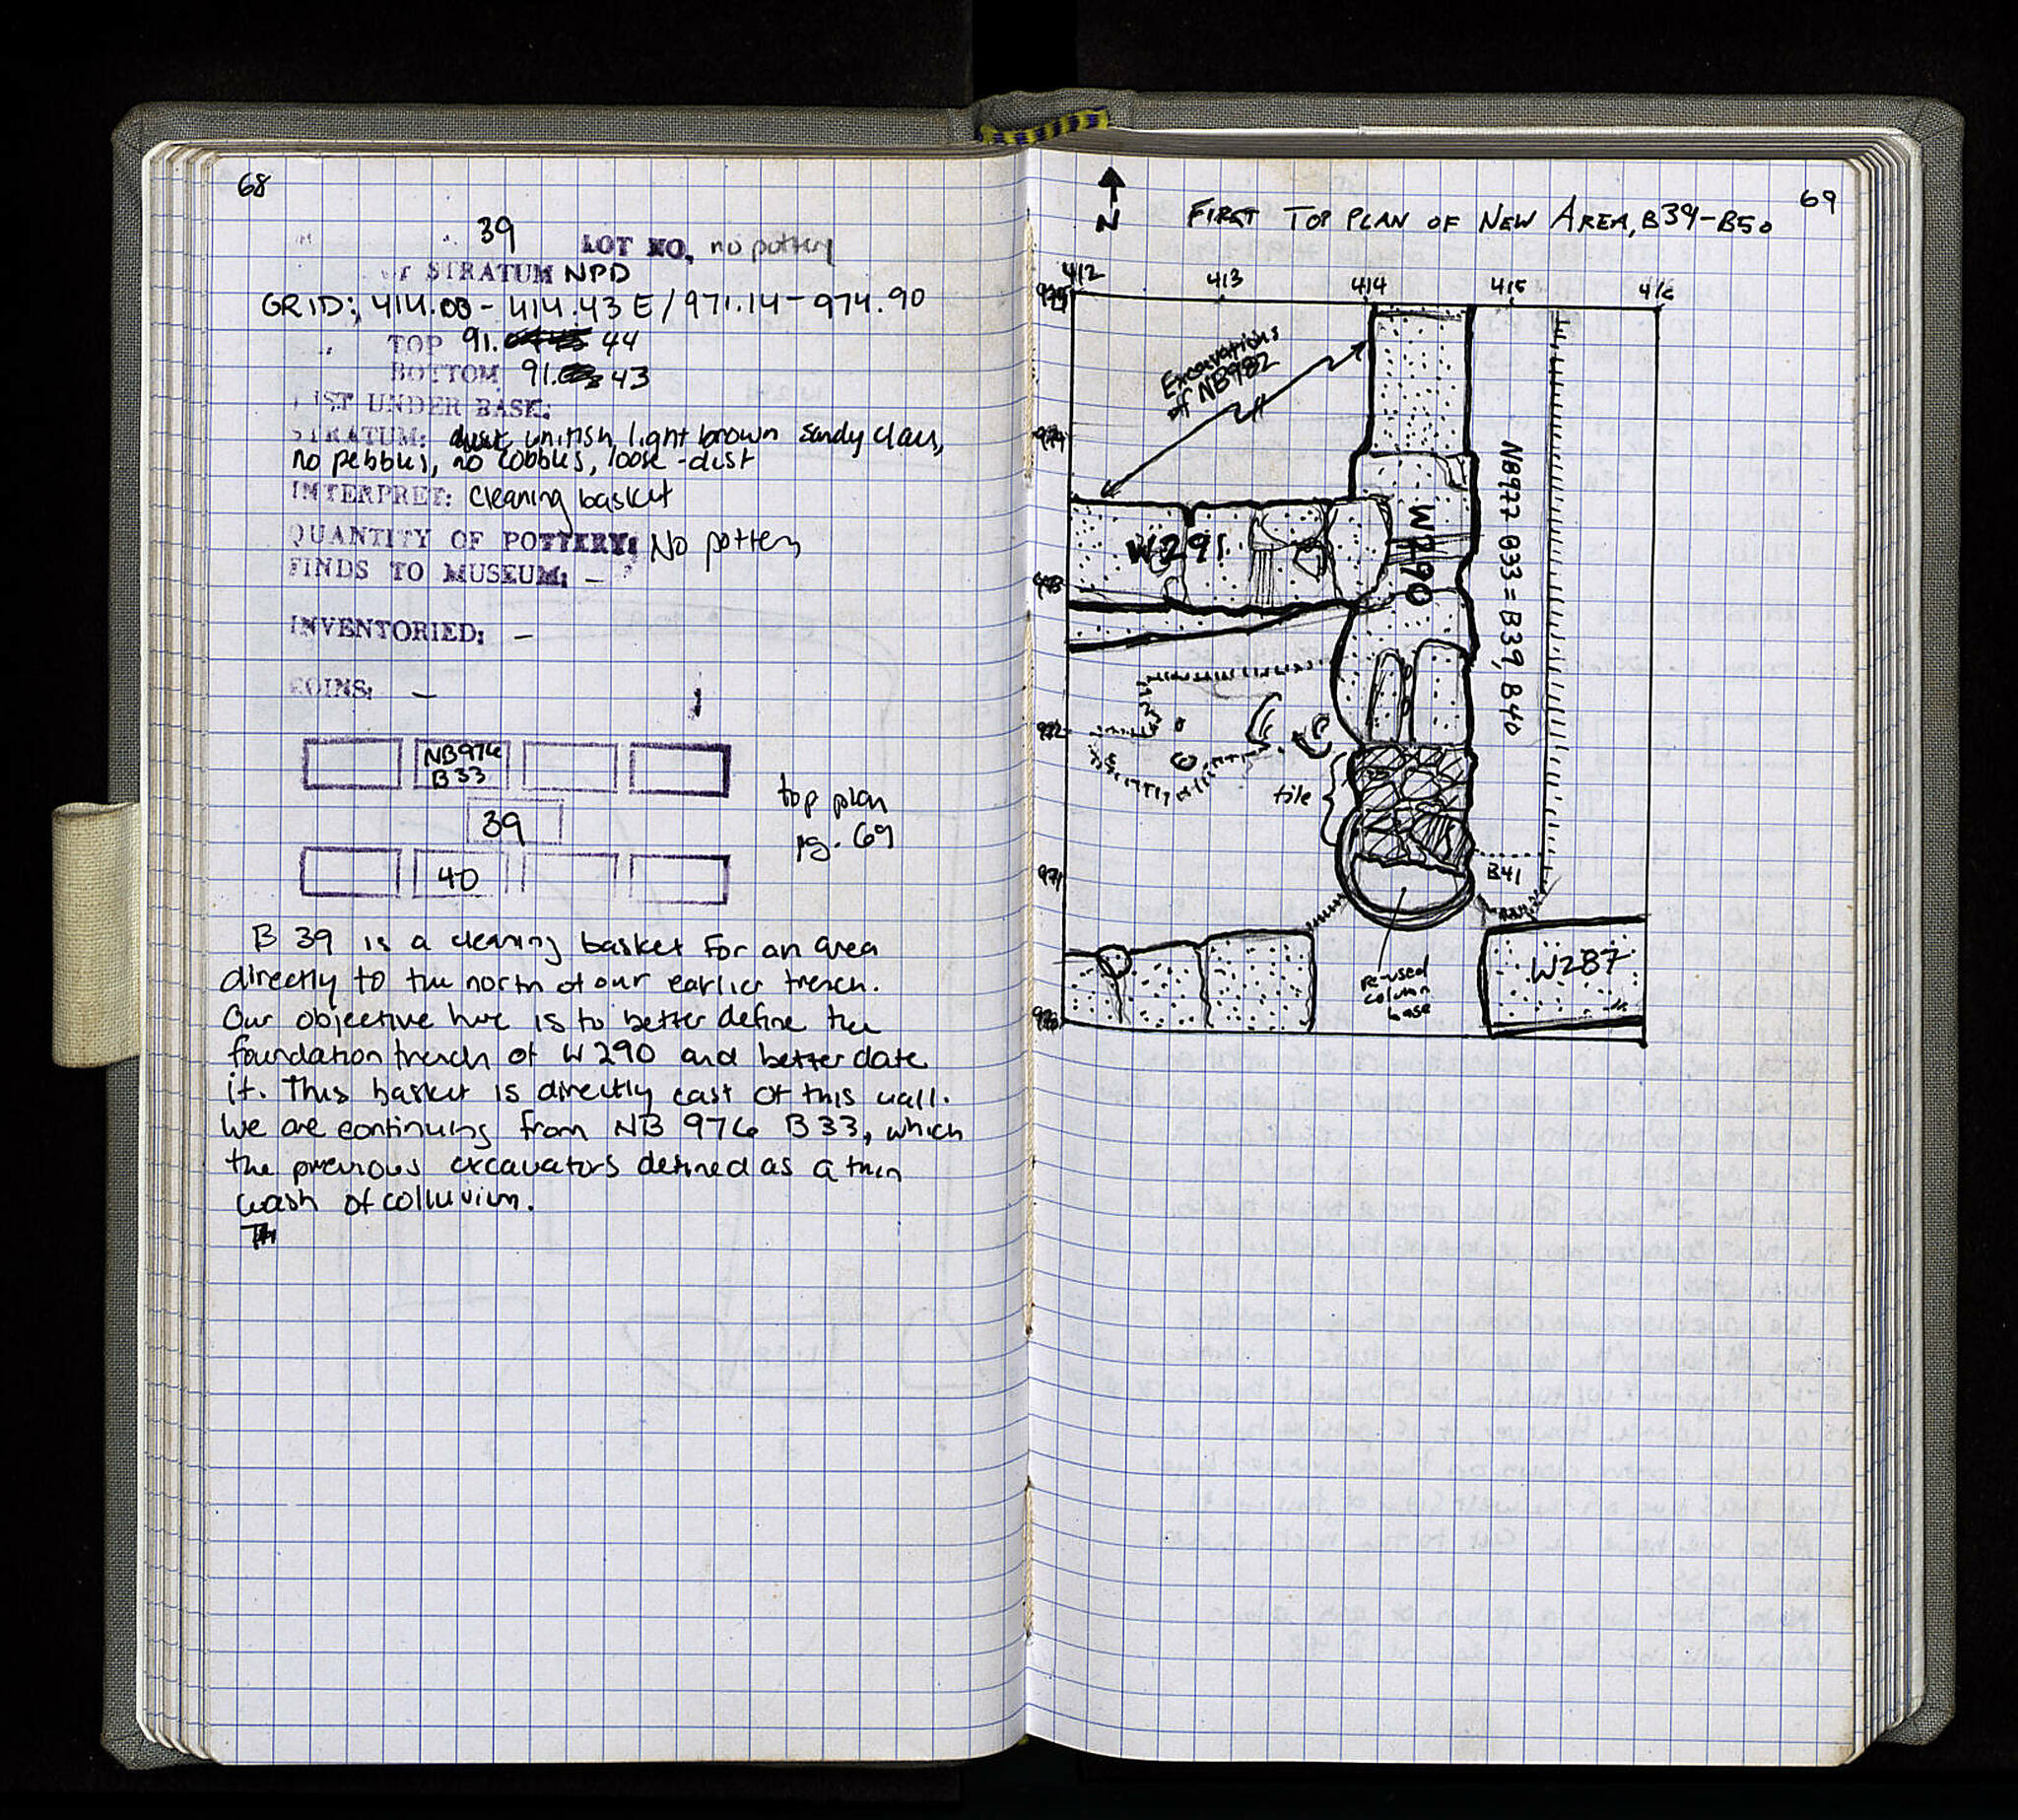 68
39 LOT NO. no pottery
STRATUM NPD
GRID: 414.00 - 414.43 E / 971.14 - 974.90
TOP 91. 44
BOTTOM 91. 43
IST UNDER BASK:
STRATUM: dust, light brown sandy clay,
no pebbles, no cobbles, loose - dust
INTERPRET: cleaning basket
QUANTITY OF POTTERY: No pottery
FINDS TO MUSEUM: -
INVENTORIED: -
COINS: -
NB976
B33
39
40
top plan
pg. 69
B 39 is a cleaning basket for an area
directly to the north of our earlier trench.
Our objective here is to better define the
foundation trench of W290 and better date
it. This basket is directly east of this wall.
We are continuing from NB 976 B33, which
the previous excavators defined as a thin
wash of colluvium.
69
N
FIRST TOP PLAN OF NEW AREA, B39-B50
412 413 414 415 416
975
Excavations
of NB982
974
NB977 B33 = B39, B40
W291
W290
973
972
tile
971
B41
re-used
column
base
W287
970